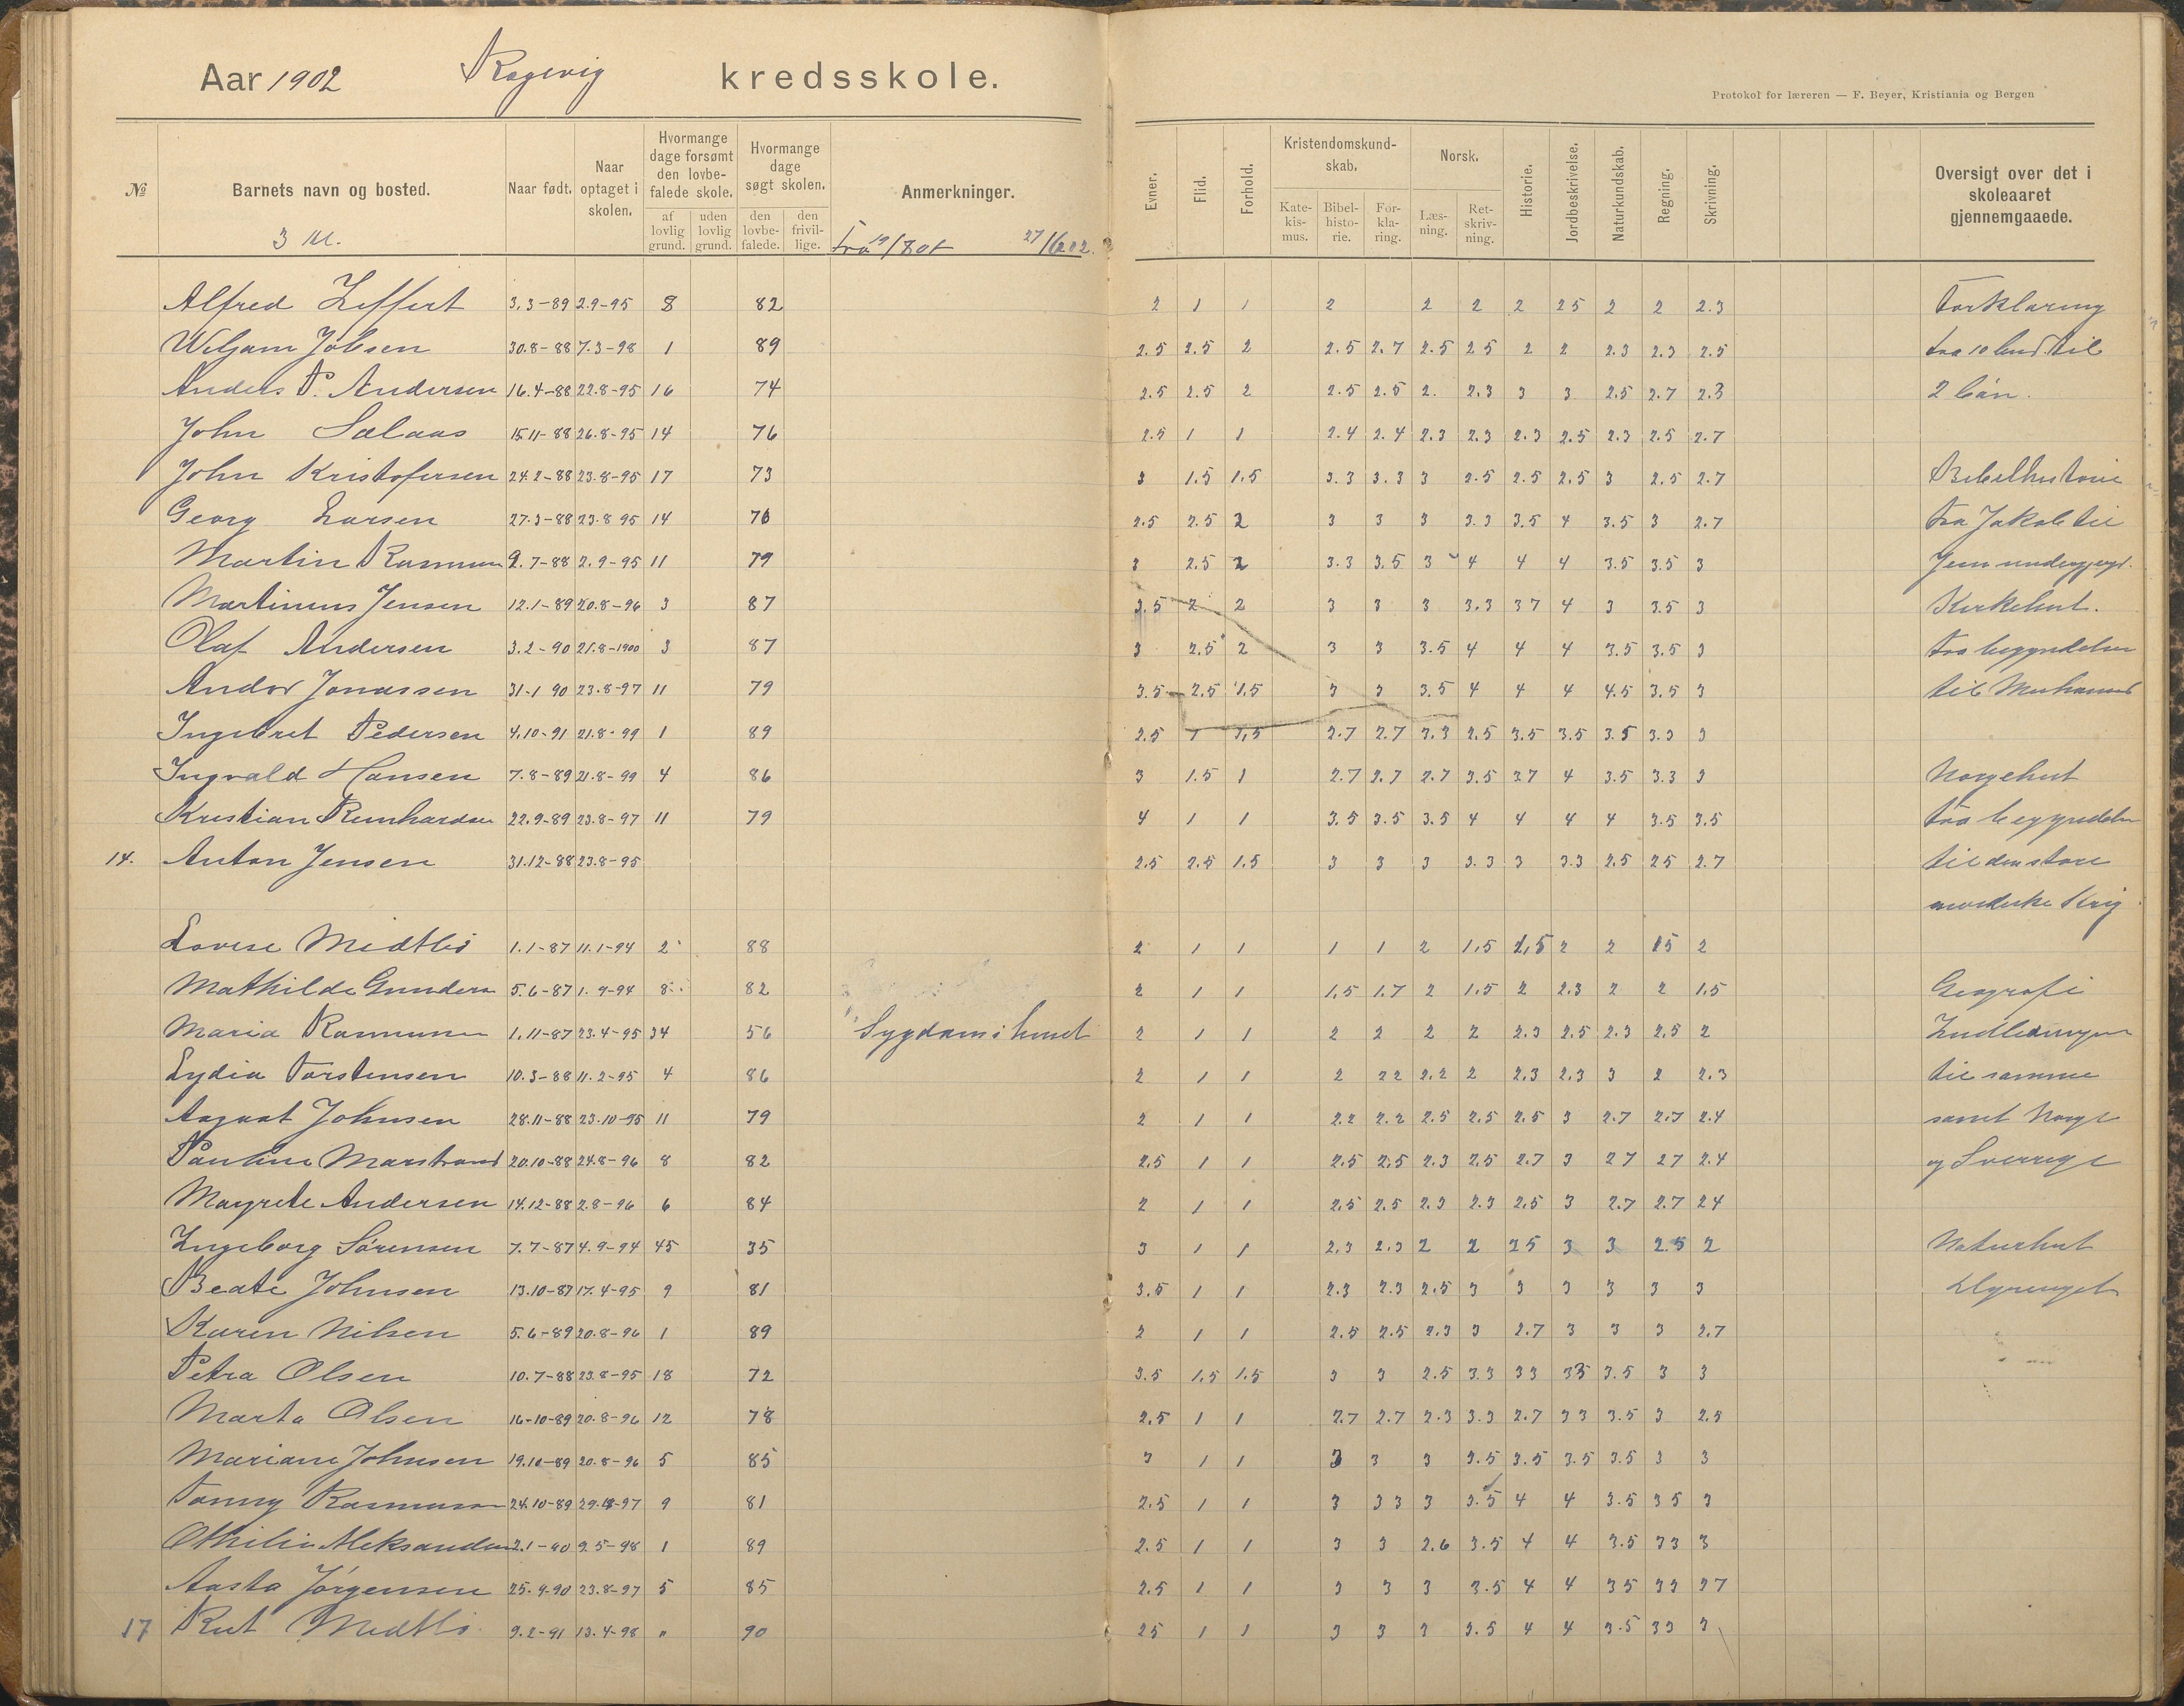 Aar 1902 kredsskole.
Protokol for læreren — F. Beyer, Kristiania og Bergen
№ Barnets navn og bosted. Naar født. Naar optaget i skolen. Hvormange dage forsømt den lovbefalede skole. af lovlig grund. uden lovlig grund. Hvormange dage søgt skolen. den lovbefalede. den frivillige. Anmerkninger. Evner. Flid. Forhold. Kristendomskundskab. Katekismus. Bibelhistorie. Forklaring. Norsk. Læsning. Retskrivning. Historie. Jordbeskrivelse. Naturkundskab. Regning. Skrivning. Oversigt over det i skoleaaret gjennemgaaede.
3 kl. 27/6 02.
Alfred Zeffert 3.3-89 2.9-95 8 82 2 1 1 2 2 2 2 2 5 2 2 2.3 Forklaring
Wiljam Jobsen 30.8-88 7.3-98 1 89 2.5 2.5 2 2.5 2.7 2.5 2 5 2 2 2.3 2.3 2.5 fra 10 bud til
Anders P. Andersen 16.4-88 22.8-95 16 74 2.5 2.5 2 2.5 2.5 2. 2.3 3 3 2.5 2.7 2.3 2 bøn.
John Salaas 15.11-88 26.8-95 14 76 2.5 1 1 2.4 2.4 2.3 2.3 2.3 2.5 2.3 2.5 2.7
John Kristofersen 24.2-88 23.8-95 17 73 3 1.5 1.5 3.3 3.3 3 2.5 2.5 2.5 3 2.5 2.7 Bibelhistorie
Georg Larsen 27.3-88 23.8 95 14 76 2.5 2.5 2 3 3 3 3.3 3.5 4 3.5 3 2.7 fra Jakob til
Martin 9.7-88 2.9-95 11 79 3 2.5 2 3.3 3.5 3 4 4 4 3.5 3.5 3
Martinius Jensen 12.1-89 20.8-96 3 87 3.5 2 2 3 3 3 3.3 3 7 4 3 3.5 3 Kirkehist.
Olaf Andersen 3.2-90 21.8-1900 3 87 3 2.5 2 3 3 3.5 4 4 4 3.5 3.5 3 fra begyndelsen
Andor Jonassen 31-1 90 23.8-97 11 79 3.5 2.5 1.5 3 3 3.5 4 4 4 4.5 3.5 3 til Muhamed
Ingebret Pedersen 4.10-91 21.8-99 1 89 2.5 1 1,5 2.7 2.7 3.3 2.5 3.5 3.5 3.5 3.3 3
Ingvald Hansen 7.8-89 21.8-99 4 86 3 1.5 1 2.7 2.7 2.7 3.5 3.7 4 3.5 3.3 3 Norgehist
Kristian Reinhardsen 22.9-89 23.8-97 11 79 4 1 1 3.5 3.5 3.5 4 4 4 4 3.5 3.5 fra begyndelsen
14. Anton Jensen 31.12-88 23.8-95 2.5 2.5 1.5 3 3 3 3.3 3 3.3 2.5 2 5 2.7 til den store
nordiske Krig
Lovise Midtbø 1.1-87 11.1-94 2 88 2 1 1 1 1 2 1.5 1,5 2 2 1 5 2
Mathilde Gunders 5.6-87 1.9-94 8 82 2 1 1 1.5 1.7 2 1.5 2 2.3 2 2 1.5 Geografi
Maria 1.11-87 23.4-95 34 56 Sygdom i huset 2 1 1 2 2 2 2 2.3 2.5 2.3 2.5 2 Indledningen
Lydia Torstensen 10.3-88 11.2-95 4 86 2 1 1 2 2 2 2.2 2 2.3 2.3 3 2 2.3 til samme
Aagaat Johnsen 28.11-88 23.10-95 11 79 2 1 1 2.2 2.2 2.5 2.5 2.5 3 2.7 2.7 2.4 samt Norge
Pauline Marstrand 20.10-88 24.8-96 8 82 2.5 1 1 2.5 2.5 2.3 2.5 2.7 3 2 7 2 7 2.4 og Sverrige
Magrete Andersen 14.12-88 2.8-96 6 84 2 1 1 2.5 2.5 2.3 2.3 2.5 3 2.7 2.7 2 4
Ingeborg Sørensen 7.7-87 4.9-94 45 35 3 1 1 2.3 2.3 2 2 2 5 3 3 2.5 2 Naturhist
Beate Johnsen 13.10-87 17.4-95 9 81 3.5 1 1 2.3 2.3 2.5 3 3 3 3 3 3 Dyreriget
Karen Nilsen 5.6-89 20.8-96 1 89 2 1 1 2.5 2.5 2.3 3 2.7 3 3 3 2.7
Petra Olsen 10.7-88 23.8-95 18 72 3.5 1.5 1.5 3 3 2.5 3.3 3 3 3 3 3.5 3 3
Marta Olsen 16-10-89 20.8-96 12 78 2.5 1 1 2.7 2.7 2.3 3.3 2.7 3 3 3.5 3 2.5
Mariane Johnsen 19.10-89 20.8-96 5 85 3 1 1 3 3 3 3.5 3.5 3.5 3.5 3 3
Fanny 24.10-89 9 81 2.5 1 1 3 3 3 3 3.5 4 4 3.5 3 5 3
Othilie Aleksandersen 2.1-90 9.5-98 1 89 2.5 1 1 3 3 2.6 3.5 4 4 3.5 3 3 3
Aasta Jørgensen 25.9-90 23.8-97 5 85 2.5 1 1 3 3 3 3.5 4 4 3 5 3 3 2 7
17 Rut Midtbø 9.2-91 13.4-98 " 90 2 5 1 1 3 3 3 3.5 4 4 3.5 3 3 3